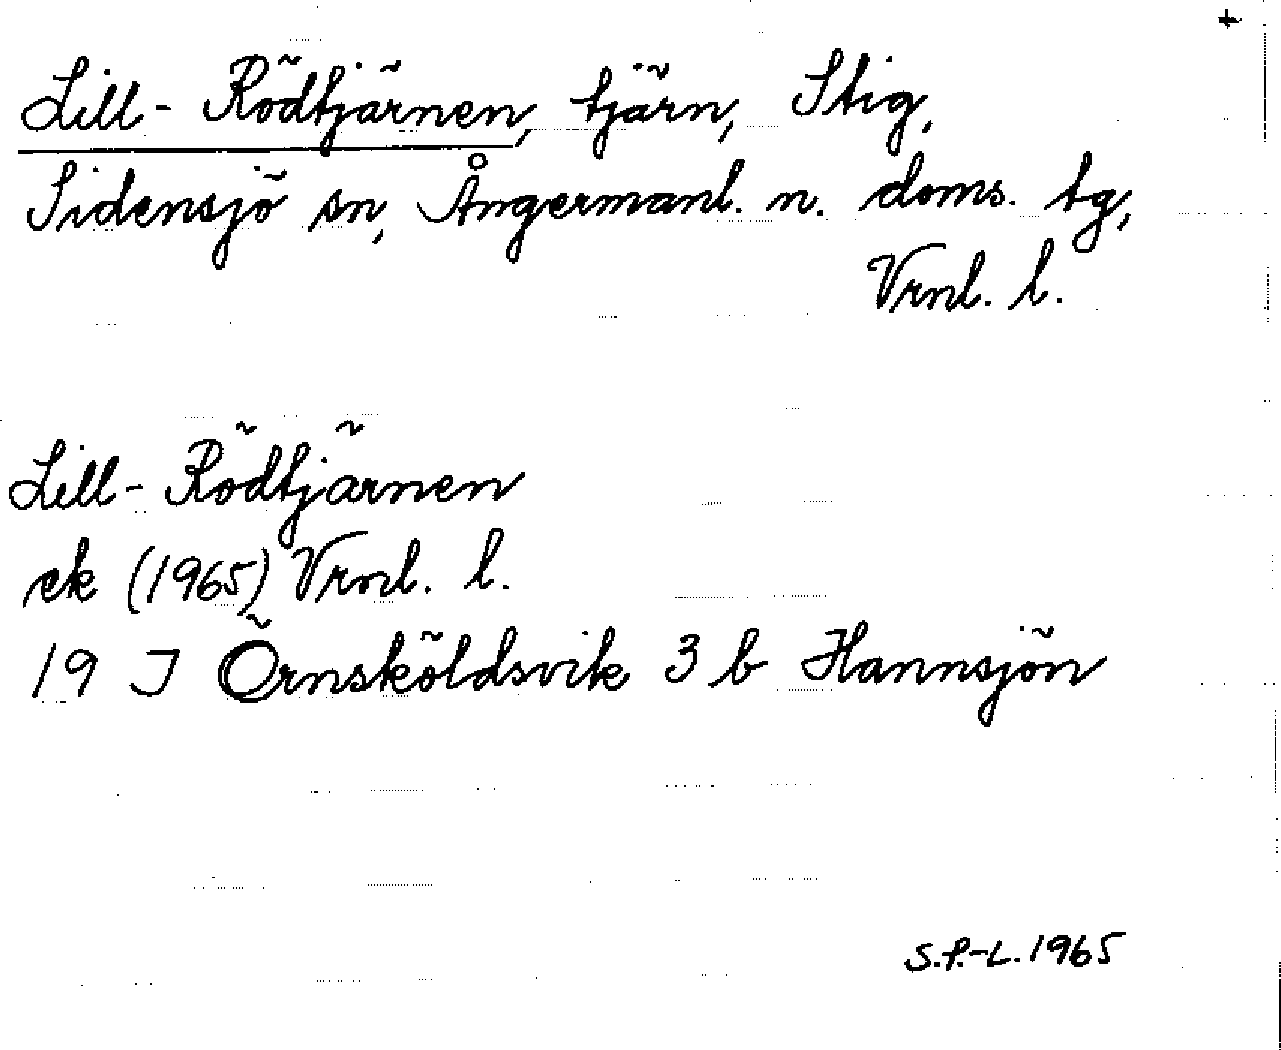 +
Lill-Rödtjärnen, tjärn, Stig,
Sidensjö sn, Ångermanl. n. doms. tg,
Vrnl. l.
Lill-Rödtjärnen
ek (1965) Vrnl. l.
19 J Örnsköldsvik 3 b Hannsjön
S.P.-L. 1965